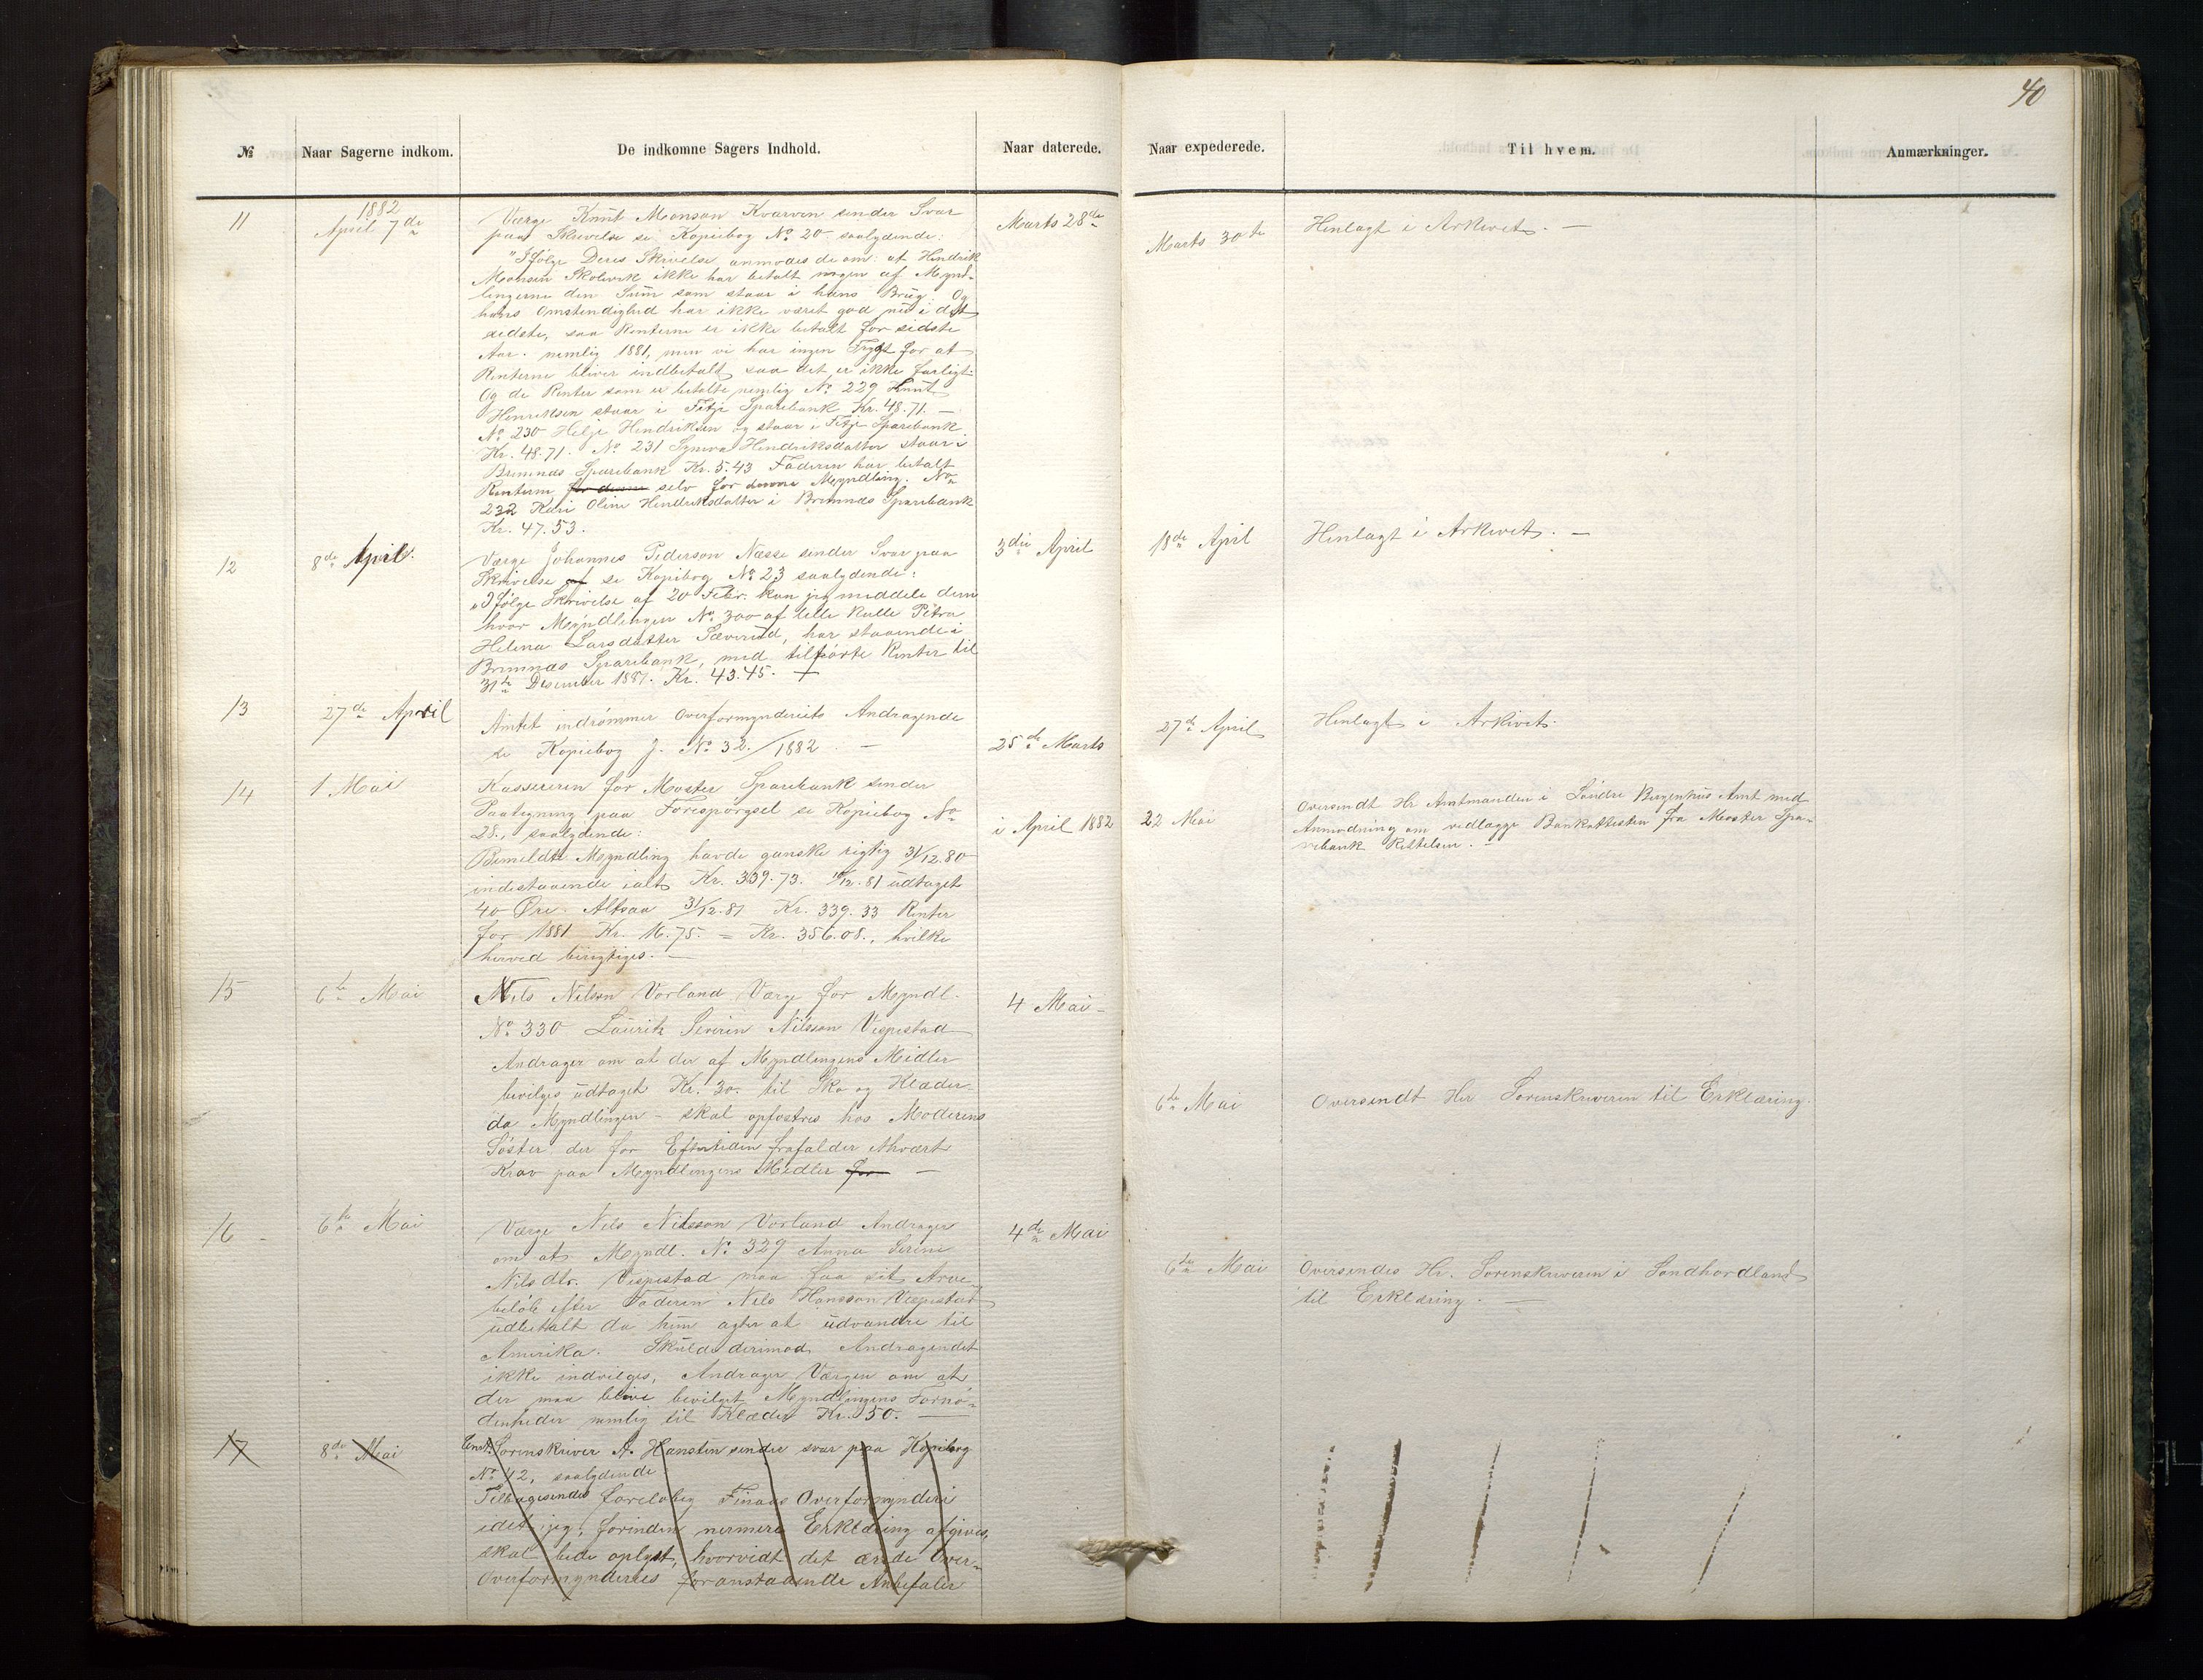 40
№
Naar Sagerne indkom.
De indkomne Sagers Indhold.
Naar daterede.
Naar expederede.
Til hvem.
Anmærkninger.
11
1882
April 7de
Værge Knut Monson Kvarven sender Svar
paa Skrivelse se Kopiebog No 20 saalydende:
"Ifølge Deres Skrivelse anmodes de om: at Hendrik
Monsen Skolevik ikke har betalt nogen af Mynd-
lingerne den Sum som staar i hans Brug. Og
hans Omstendighed har ikke været god nu i det
sidste, saa Renterne er ikke betalt for sidste
Aar. nemlig 1881, men vi har ingen Frygt for at
Renterne bliver indbetalt saa det er ikke farligt
Og de Renter som er betalte nemlig No 229 Knut
Henriksen staar i Fitje Sparebank Kr. 48.71. —
No 230 Helje Hendriksen og staar i Fitje Sparebank
Kr. 48.71. No 231 Syneva Hendriksdatter staar i
Bremnæs Sparebank Kr. 5.43 Faderen har betalt
Renterne for denne selv for denne Myndling. No
232 Kari Oline Hendriksdatter i Bremnæs Sparebank
Kr. 47.53.
Marts 28de
Marts 30te
Henlagt i Arkivet. —
12
8de April.
Værge Johannes Pederson Næsse sender Svar paa
Skrivelse af se Kopibog No 23 saalydende:
"Ifølge Skrivelse af 20 Febr. kan jeg meddele dem
hvor Myndlingen No 300 af lille Kalle Petra
Helena Larsdatter Sæverud, har staaende i
Bremnæs Sparebank, med tilførte Renter til
31te Desember 1881. Kr. 43.45. —
3die April
18de April
Henlagt i Arkivet. —
13
27de April
Amtet indrømmer Overformynderiets Andragende
se Kopiebog J. No 32./1882. —
25de Marts
27de April
Henlagt i Arkivet.
14
1 Mai
Kassereren for Moster Sparebank sender
Paategning paa Forespørgsel se Kopiebog No
28., saalydende:
Bemeldte Myndling havde ganske rigtig 31/12.80
indestaaende ialt Kr. 339.73. 10/12.81 udtaget
40 Øre. Altsaa 31/12.81 Kr. 339.33 Renter
for 1881 Kr. 16.75. = Kr. 356.08., hvilke
herved berigtiges. —
i April 1882
22 Mai
Oversendt Hr Amtmanden i Søndre Bergenhus Amt med
Anmodning om vedlagge Bankattesten fra Moster Spa-
rebank Rettelsen. —
15
6te Mai
Nils Nilson Vorland Værge for Myndl.
No 330 Lauritz Severin Nilsson Vespestad
Andrager om at der af Myndlingens Midler
bevilges udtaget Kr. 30. til Sko og Klæder
da Myndlingen – skal opfostres hos Moderens
Søster der for Eftertiden frafalder ethvært
Krav paa Myndlingens Midler for —
4 Mai
6te Mai
Oversendt Hr Sorenskriveren til Erklæring.
16
6te Mai
Værge Nils Nilsson Vorland Andrager
om at Myndl. No 329 Anna Serine
Nilsdtr. Vespestad maa faa sit Arve-
beløb efter Faderen Nils Hansson Vespestad
udbetalt da hun agter at udvandre til
Amerika. Skulde derimod Andragendet
ikke indvilges, Andrager Værgen om at
der maa blive bevilget Myndlingens Fornø-
denheder nemlig til Klæder Kr. 50. —
4de Mai
6te Mai
Oversendes Hr. Sorenskriveren i Søndhordland
til Erklæring. —
17
8de Mai
Const. Sorenskriver A. Hansten sender svar paa Kopibog
No 42, saalydende
Tilbagesendes foreløbig Finaas Overformynderi
idet jeg, forinden nermere Erklæring afgives,
skal bede oplyst, hvorvidt det ærede Over-
Overformynderies foranstaaende Anbefaler